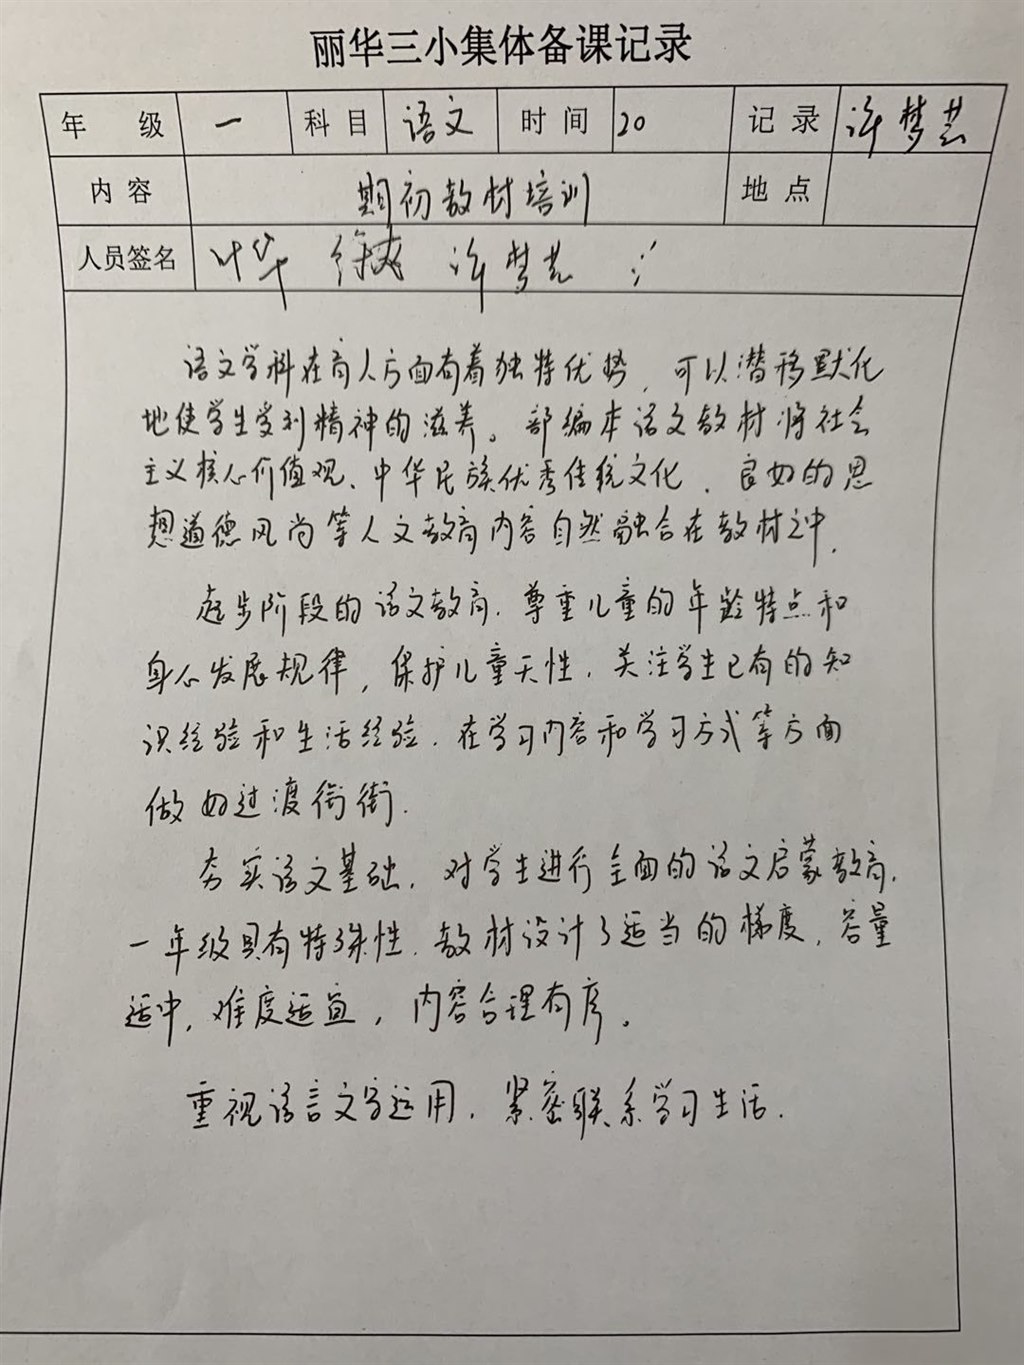 丽华三小集体备课记录
年 级 一 科 目 语文 时 间 20 记 录 许梦芸
内 容 期初教材培训 地 点
人员签名 叶华 徐 许梦芸
语文学科在育人方面有着独特优势，可以潜移默化
地使学生受到精神的滋养。部编本语文教材将社会
主义核心价值观、中华民族优秀传统文化、良好的思
想道德风尚等人文教育内容自然融合在教材之中.
起步阶段的语文教育.尊重儿童的年龄特点和
身心发展规律，保护儿童天性.关注学生已有的知
识经验和生活经验.在学习内容和学习方式等方面
做好过渡衔街.
夯实语文基础.对学生进行全面的语文启蒙教育.
一年级具有特殊性.教材设计了适当的梯度，容量
适中，难度适宜，内容合理有序。
重视语言文字运用.紧密联系学习生活.